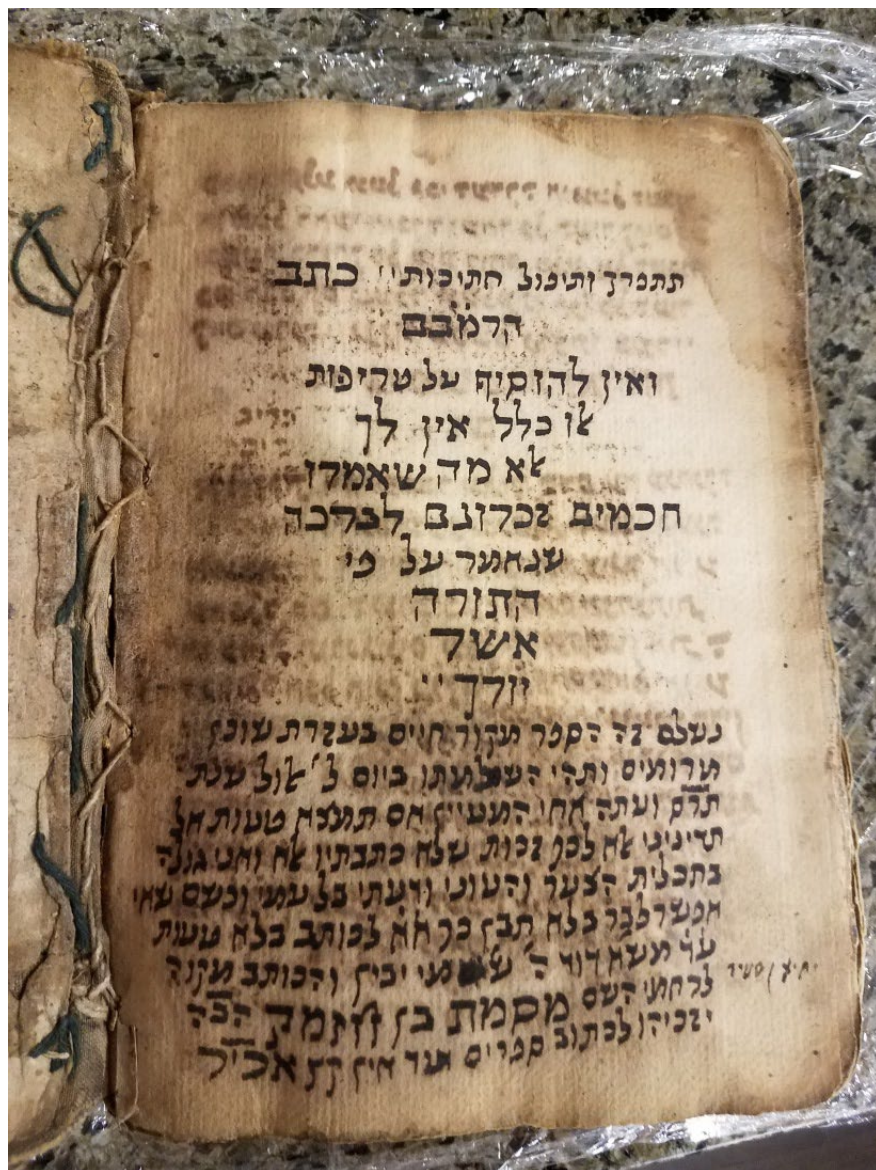 תתפרך ותיפול חתיכותיי כתב
הרמבם
ואין להוסיף על טריפות
אלו כלל אין לך
אלא מה שאמרו
חכמים זכרונם לברכה
שנאמר על פי
התורה
אשר
יורך
נשלם זה הספר מקור חיים בעזרת שוכן
מרומים ותהי השלמתו ביום ל׳ אלול שנת
ועתה אחי המעיין אם תמצא טעות אל
תדינני אלא לכף זכות שלא כתבתיו אלא ואני גולה
בתכלית הצער והעוני ודעתי בל עמי וכשם שאי
אפשר לבר בלא תבן כך אלא לכותב בלא טעות
על יבין והכותב מקוה
לרחמי השם בן הבה
יזכיהו לכתוב ספרים עד אין קץ אכיר